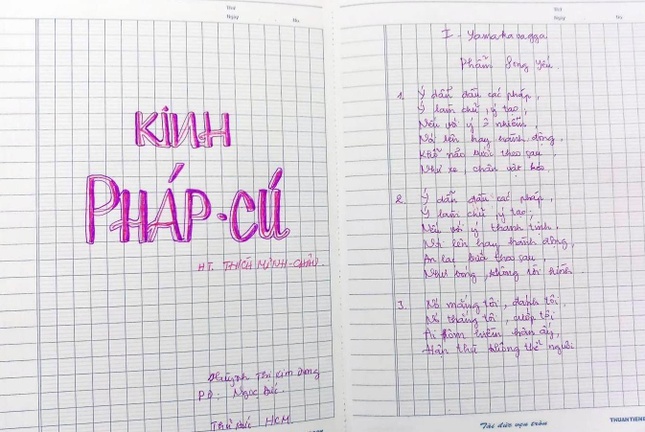 Thứ
Ngày No.
KINH
PHÁP-CÚ
HT. THÍCH MINH-CHÂU.
Huỳnh Thị Kim Dung
PD. Ngọc Đức.
Thủ Đức HCM.
Thứ
Ngày No.
I - Yamakavagga
Phẩm Song Yếu
1. Ý dẫn đầu các pháp,
Ý làm chủ, ý tạo,
Nếu với ý ô nhiễm,
Nói lên hay hành động,
Khổ não bước theo sau,
Như xe, chân vật kéo.
2. Ý dẫn đầu các pháp,
Ý làm chủ, ý tạo,
Nếu với ý thanh tịnh,
Nói lên hay hành động,
An lạc bước theo sau,
Như bóng, không rời hình.
3. Nó mắng tôi, đánh tôi,
Nó thắng tôi, cướp tôi
Ai ôm hiềm hận ấy,
Hận thù không thể nguôi
Tài đức vẹn toàn
THUANTIEN